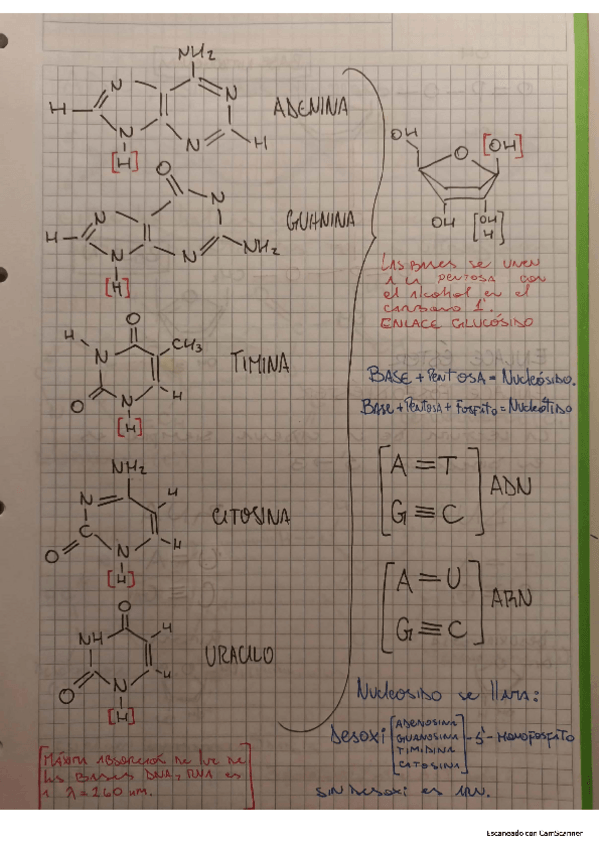 NH2
N
N
H
N
N
H
[H]
ADENINA
O
N
N
H
N
N
NH2
[H]
GUANINA
O
H
N
CH3
O
N
H
[H]
TIMINA
NH2
N
H
C
O
N
H
[H]
CITOSINA
O
NH
H
O
N
H
[H]
URACILO
[MÁXIMA ABSORCIÓN DE LUZ DE
LAS BASES DNA, RNA ES
λ = 260 nm.
OH
O
[OH]
OH
[OH
H]
LAS BASES SE UNEN
A LA PENTOSA CON
el alcohol en el
carbono 1'.
ENLACE GLUCÓSIDO
BASE + PENTOSA = Nucleósido.
Base + Pentosa + Fosfato = Nucleótido
[A = T
G ≡ C] ADN
[A = U
G ≡ C] ARN
Nucleosido se llama:
Desoxi [ADENOSINA
GUANOSINA
TIMIDINA
CITOSINA] - 5' - MONOFOSFATO
SIN DESOXI es ARN.
Escaneado con CamScanner